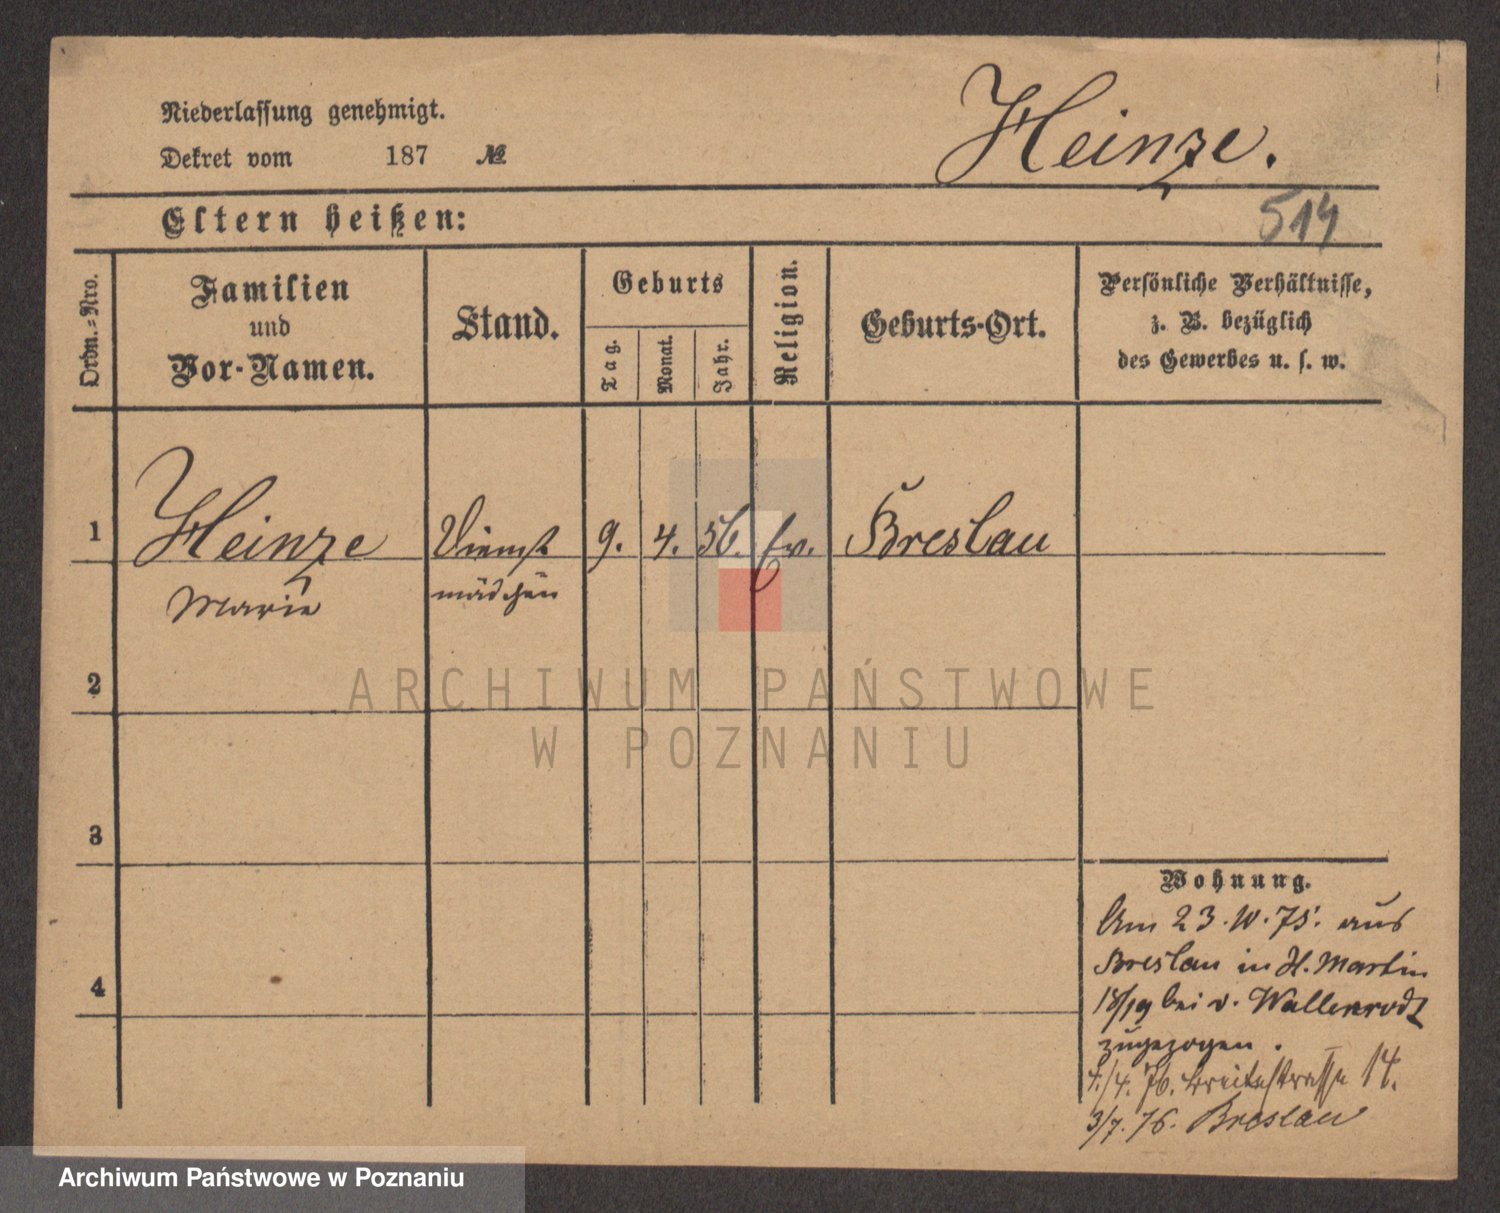 Niederlassung genehmigt.
Dekret vom 187 №
Heinze.
514
Eltern heißen:
Ordn.=Nro.
Familien
und
Vor-Namen.
Stand.
Geburts
Tag.
Monat.
Jahr.
Religion.
Geburts-Ort.
Persönliche Verhältnisse,
z. B. bezüglich
des Gewerbes u. s. w.
1 Heinze Dienst 9. 4. 56. Ev. Breslau
Marie mädchen
2
3
4
Wohnung.
Am 23. 10. 75. aus
Breslau in St. Martin
18/19 bei v. Wallenrodt
zugezogen.
4. 76. Breitestrasse 14.
3/7. 76. Breslau
ARCHIWUM PAŃSTWOWE
W POZNANIU
Archiwum Państwowe w Poznaniu